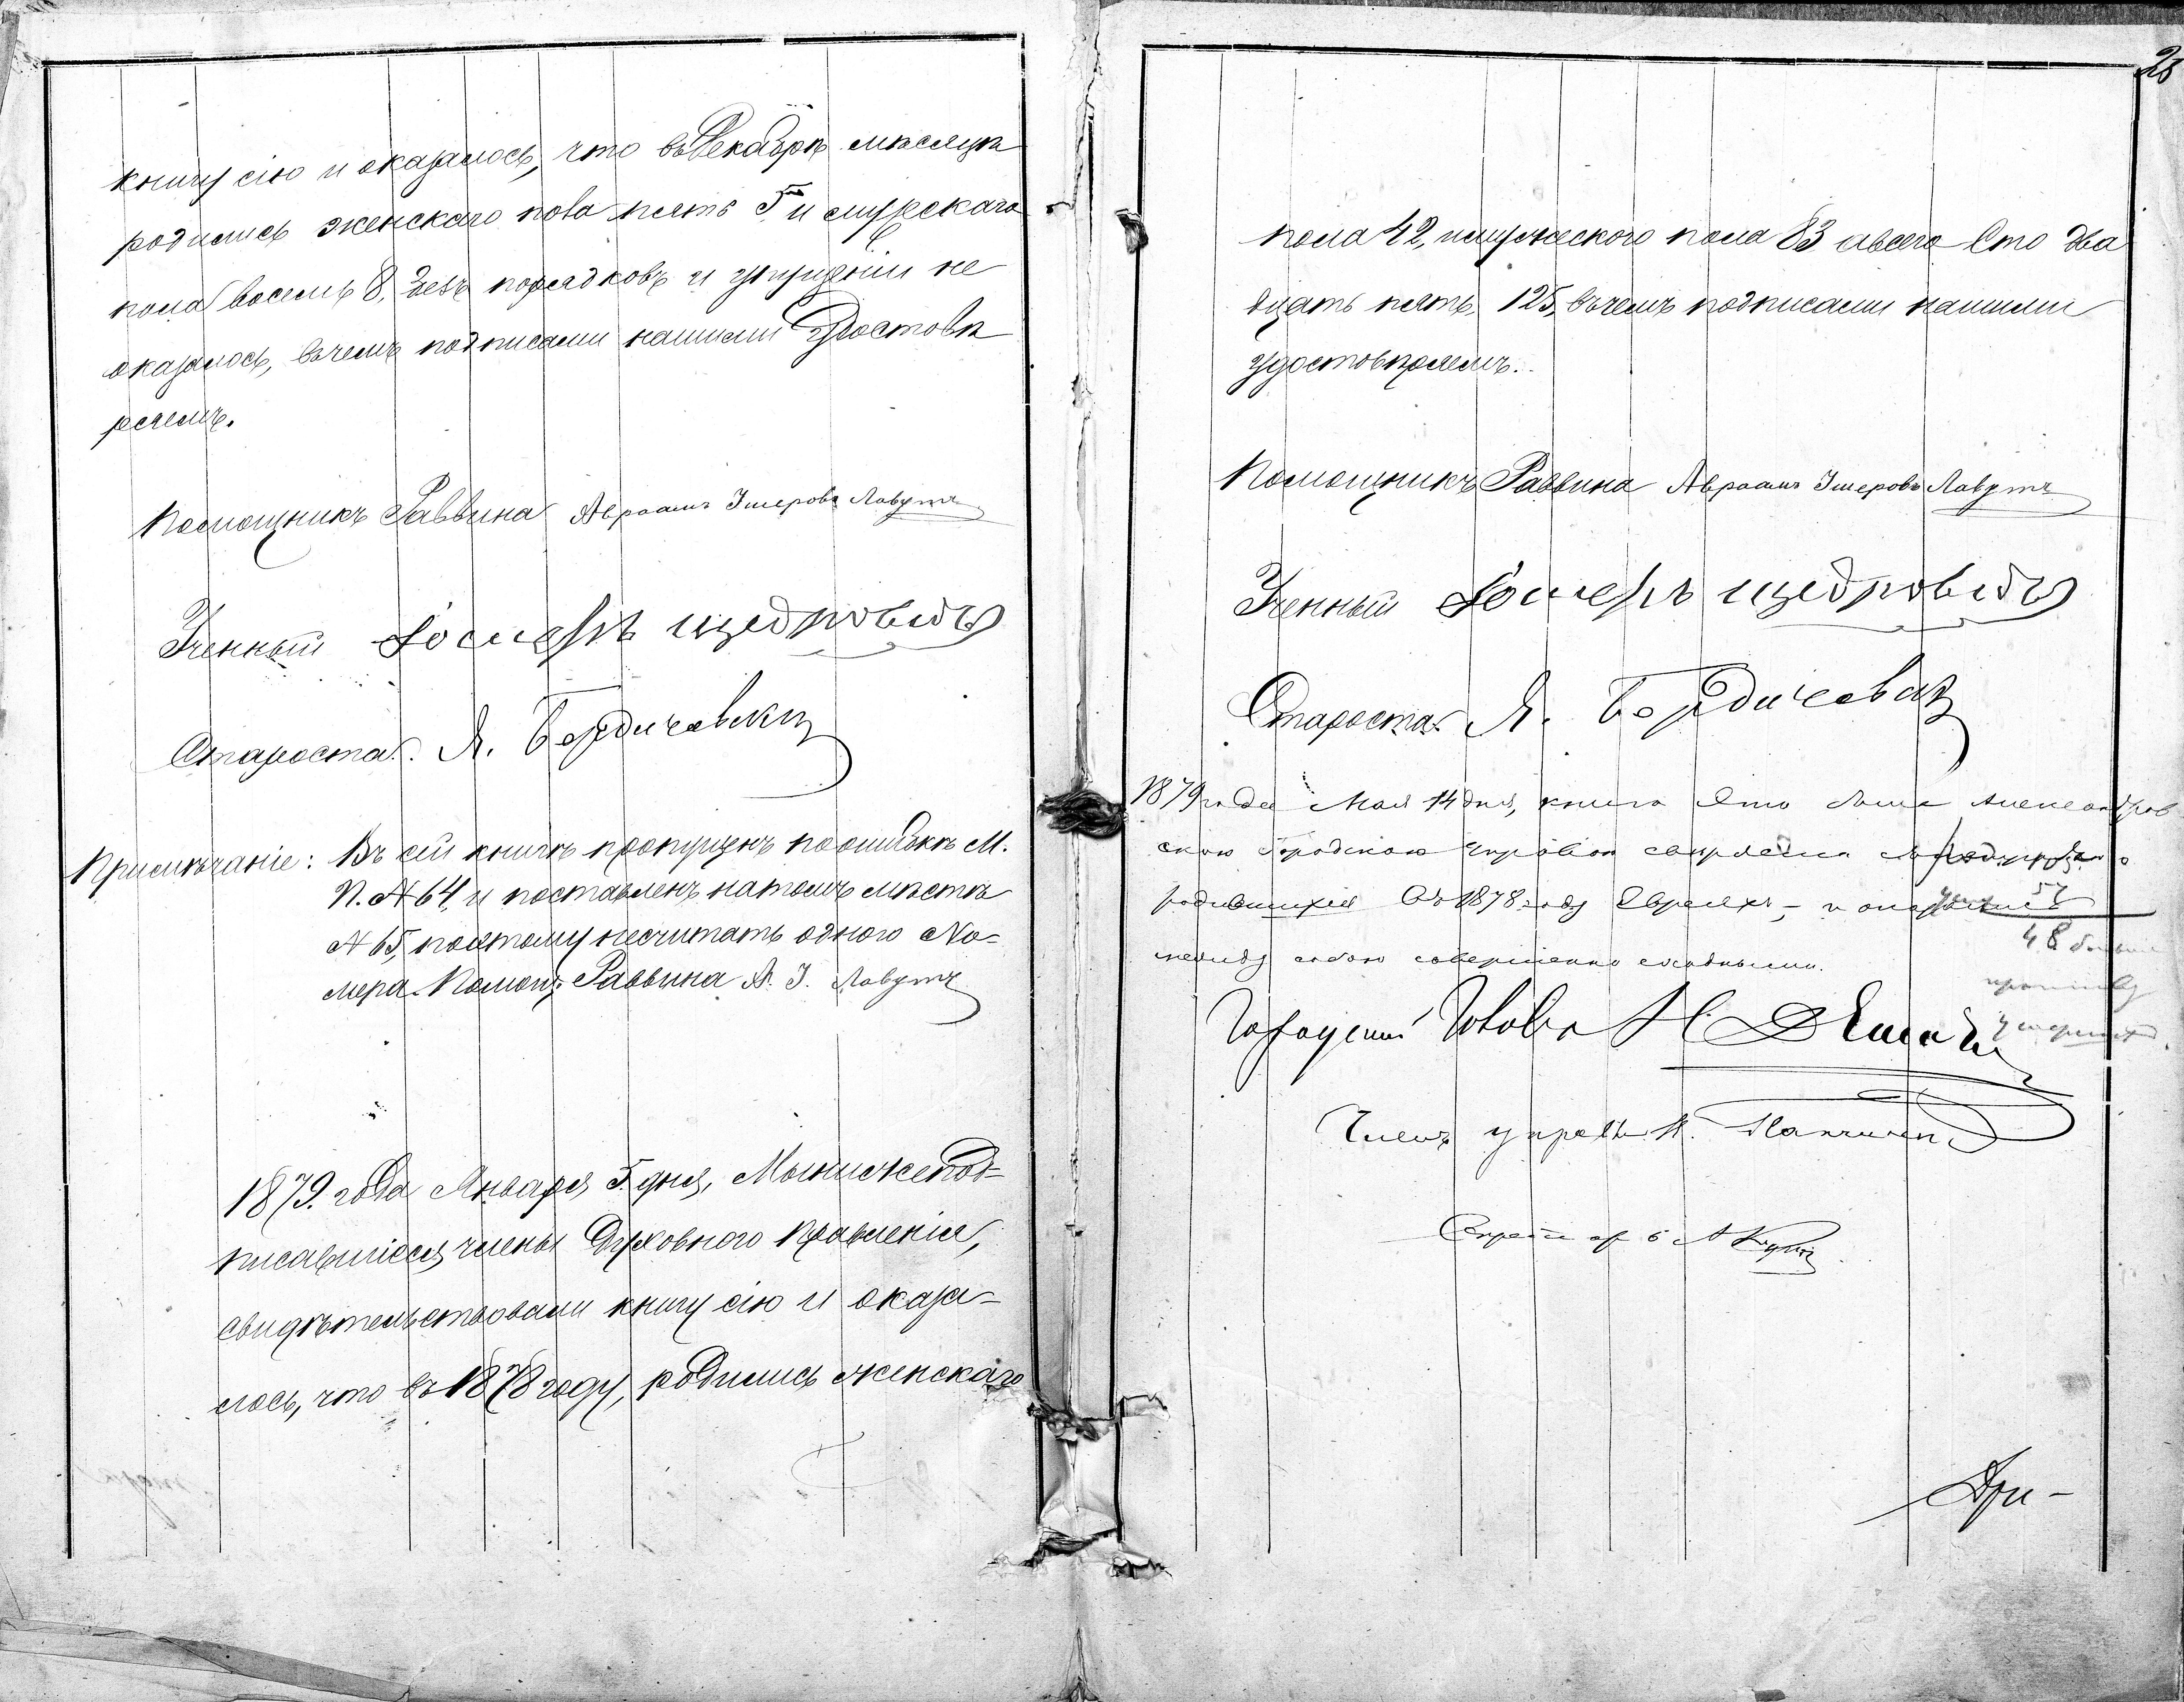 книгу сію и оказалось, что въ Декабрѣ мѣсяцѣ
родились женскаго пола пять 5 и мужскаго
пола восемь 8, безъ порядковъ и упущеніи не
оказалось, въ чемъ подписами нашими Удостовѣ
ряемъ.
Помощникъ Раввина Авраамъ Ішеровъ Лавутъ
Ученный Іосифъ щедровидъ
Староста Я. Бердичевски
Примѣчаніе: Въ сій книгѣ пропущенъ по ошибкѣ М.
П. № 64, и поставленъ на томъ мѣстѣ
№ 65, поэтому несчитать одного Но-
мера. Помощ. Раввина А. І. Лавутъ
1879. года Января 5. дня, Мы нижепод-
писавшіеся члены Духовного Правленія,
свидѣтельствовали книгу сію и оказа-
лось, что въ 1878 году, родились женскаго
28
пола 42, и мужеского пола 83 а всего Сто два
дцать пять, 125, въ чемъ подписами нашими
удостовѣряемъ.
Помощникъ Раввина Авраамъ Ішеровъ Лавутъ
Ученный Іосифъ щедровидъ
Староста Я. Бердичевски
1879 года Мая 14 дня, книга эта была Александров
скою Городскою Управою свѣрена
родившихся въ 1878 году Евреяхъ, – и оказались 57
48
между собою совершенно сходными.
Городской Голова Н.
Членъ управы
Секретарь
При-